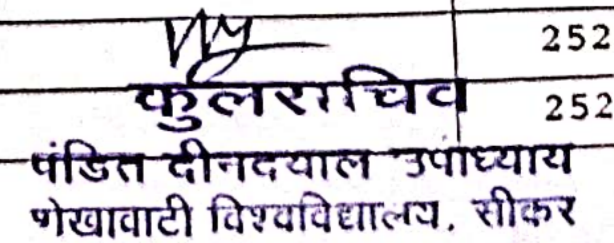 252
कुलसचिव 252
पंडित दीनदयाल उपाध्याय
शेखावाटी विश्वविद्यालय, सीकर